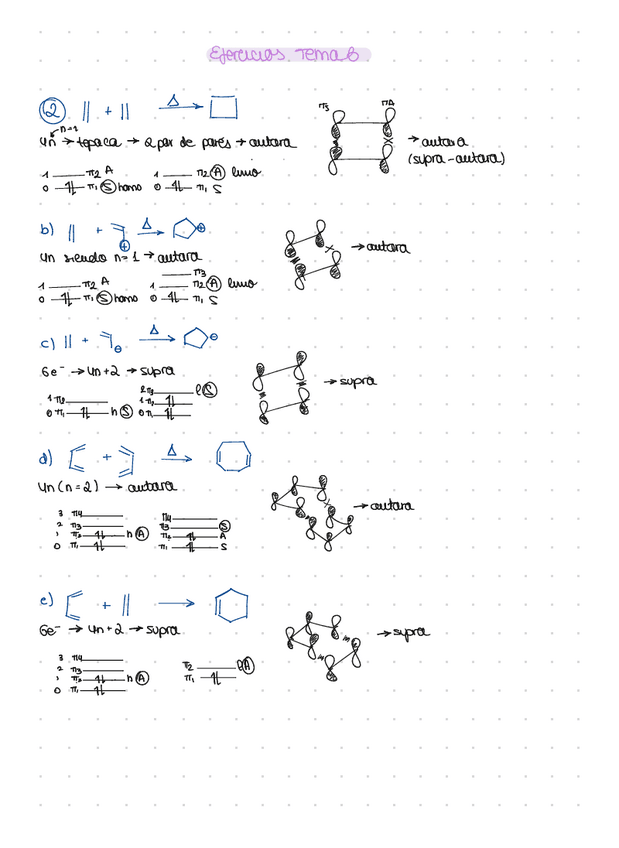 Ejercicios Tema 6
2 || + || Δ
n=1
4n → tapaca → 2 par de pares → autara
π S π A
→ autara
(supra-autara)
1 π2 A 1 π2 A lumo
0 π1 S homo 0 π1 S
b) || + Δ ⊕
4n siendo n=1 → autara
→ autara
π3
1 π2 A 1 π2 A lumo
0 π1 S homo 0 π1 S
c) || + ⊖ Δ ⊖
6e⁻ → 4n+2 → supra
→ supra
2 π3 l S
1 π2 1 π2
0 π1 h S 0 π1
d) + Δ
4n (n=2) → autara
→ autara
3 π4 π4
2 π3 π3 S
1 π2 h A π2 A
0 π1 π1 S
e) + ||
6e⁻ → 4n+2 → supra
→ supra
3 π4
2 π3 π2 l A
1 π2 h A π1
0 π1